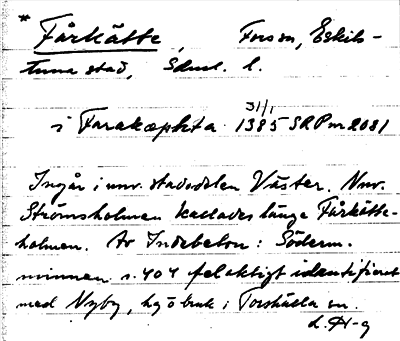 * Fårkätte, Forson, Eskils-
tuna stad, Sdml. l.
i Farakæpkta 31/1 1385 SRP nr 2081
Ingår i nuv. stadsdelen Väster. Nuv.
Strömsholmen kallades länge Fårkätte-
holmen. Av Indebetou: Söderm.
minnen s. 404 felaktigt identifierat
med Nyby, hg o bruk i Torshälla sn.